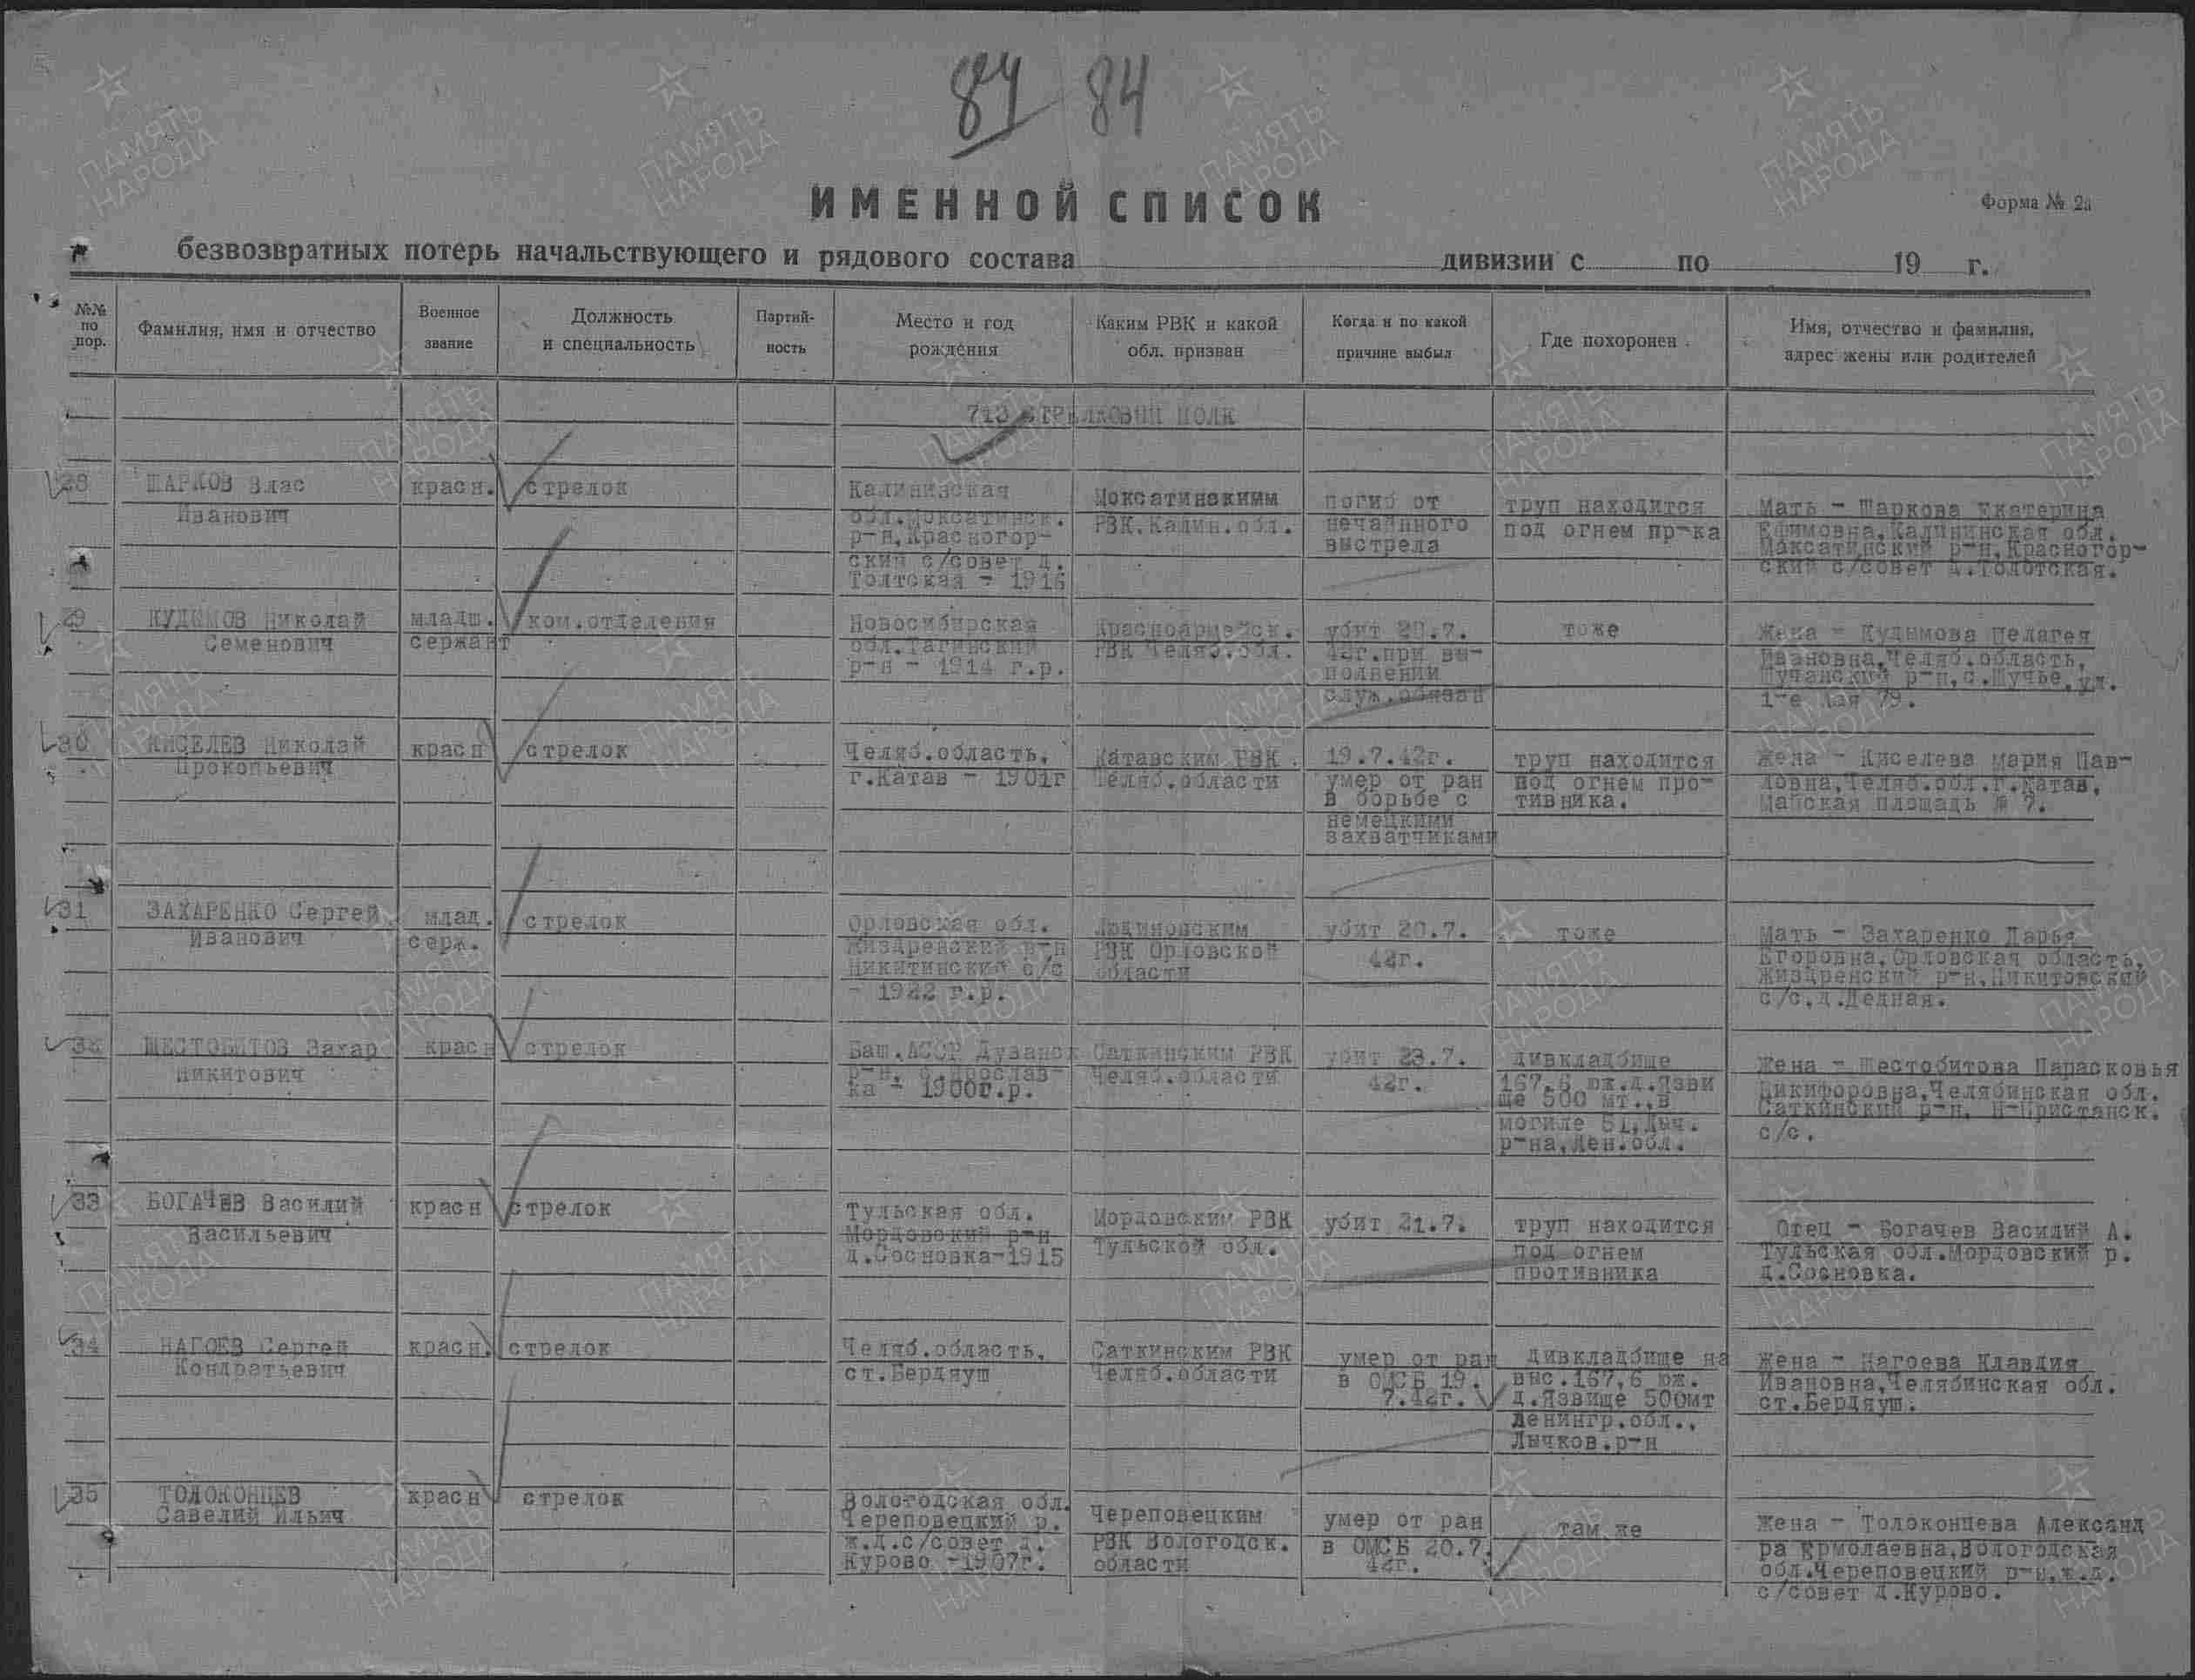 84 84
ИМЕННОЙ СПИСОК
Форма № 2а
безвозвратных потерь начальствующего и рядового состава дивизии с по 19 г.
№№ по пор.
Фамилия, имя и отчество
Военное звание
Должность и специальность
Партий-ность
Место и год рождения
Каким РВК и какой обл. призван
Когда и по какой причине выбыл
Где похоронен
Имя, отчество и фамилия, адрес жены или родителей
СТРЕЛКОВЫЙ ПОЛК
28
ШАРКОВ Влас
Иванович
красн.
стрелок
Калининская
обл.Моксатинск.
р-н,Красногор-
ский с/совет д.
Толтская - 1916
Моксатинскиим
РВК.Калин.обл.
погиб от
нечайнного
выстрела
труп находится
под огнем пр-ка
Мать - Шаркова Екатерина
Ефимовна,Калининская обл.
Максатинский р-н,Красногор-
ский с/совет д.Толотская.
29
КУДЫМОВ Николай
Семенович
младш.
сержант
ком.отделения
Новосибирская
обл.Тагинский
р-н - 1914 г.р.
Красноармейск.
РВК Челяб.обл.
убит 20.7.
42г.при вы-
полнении
служ.обязан
тоже
Жена - Кудымова Пелагея
Ивановна,Челяб.область,
Щучанский р-н,с.Щучье,ул.
1-е Мая 79.
30
КИСЕЛЕВ Николай
Прокопьевич
красн
стрелок
Челяб.область,
г.Катав - 1901г
Катавским РВК
Челяб.области
19.7.42г.
умер от ран
в борьбе с
немецкими
захватчиками
труп находится
под огнем про-
тивника.
Жена - Киселева Мария Пав-
ловна,Челяб.обл.г.Катав,
Майская площадь № 7.
31
ЗАХАРЕНКО Сергей
Иванович
млад.
серж.
стрелок
Орловская обл.
Жиздренский р-н
Никитинский с/с
- 1922 г.р.
Людиновским
РВК Орловской
области
убит 20.7.
42г.
тоже
Мать - Захаренко Дарья
Егоровна,Орловская область,
Жиздренский р-н,Никитовский
с/с,д.Ледная.
32
ШЕСТОБИТОВ Захар
Никитович
красн
стрелок
Баш.АССР Дуванск
р-н, с.Ярослав-
ка - 1900г.р.
Саткинским РВК
Челяб.области
убит 23.7.
42г.
дивкладбище
167,6 юж.д.Язви
ще 500 мт.,в
могиле 51,Лыч.
р-на,Лен.обл.
Жена - Шестобитова Парасковья
Никифоровна,Челябинская обл.
Саткинский р-н, Н-Пристанск.
с/с.
33
БОГАЧЕВ Василий
Васильевич
красн
стрелок
Тульская обл.
Мордовский р-н
д.Сосновка-1915
Мордовским РВК
Тульской обл.
убит 21.7.
труп находится
под огнем
противника
Отец - Богачев Василий А.
Тульская обл.Мордовский р.
д.Сосновка.
34
НАГОЕВ Сергей
Кондратьевич
красн.
стрелок
Челяб.область,
ст.Бердяуш
Саткинским РВК
Челяб.области
умер от ран
в ОМСБ 19.
7.42г.
дивкладбище на
выс.167,6 юж.
д.Язвище 500мт
Ленингр.обл.,
Лычков.р-н
Жена - Нагоева Клавдия
Ивановна,Челябинская обл.
ст.Бердяуш.
35
ТОЛОКОНЦЕВ
Савелий Ильич
красн
стрелок
Вологодская обл.
Череповецкий р.
ж.д.с/совет д.
Курово -1907г.
Череповецким
РВК Вологодск.
области
умер от ран
в ОМСБ 20.7.
42г.
там же
Жена - Толоконцева Александ
ра Ермолаевна,Вологодская
обл.Череповецкий р-н,ж.д.
с/совет д.Курово.